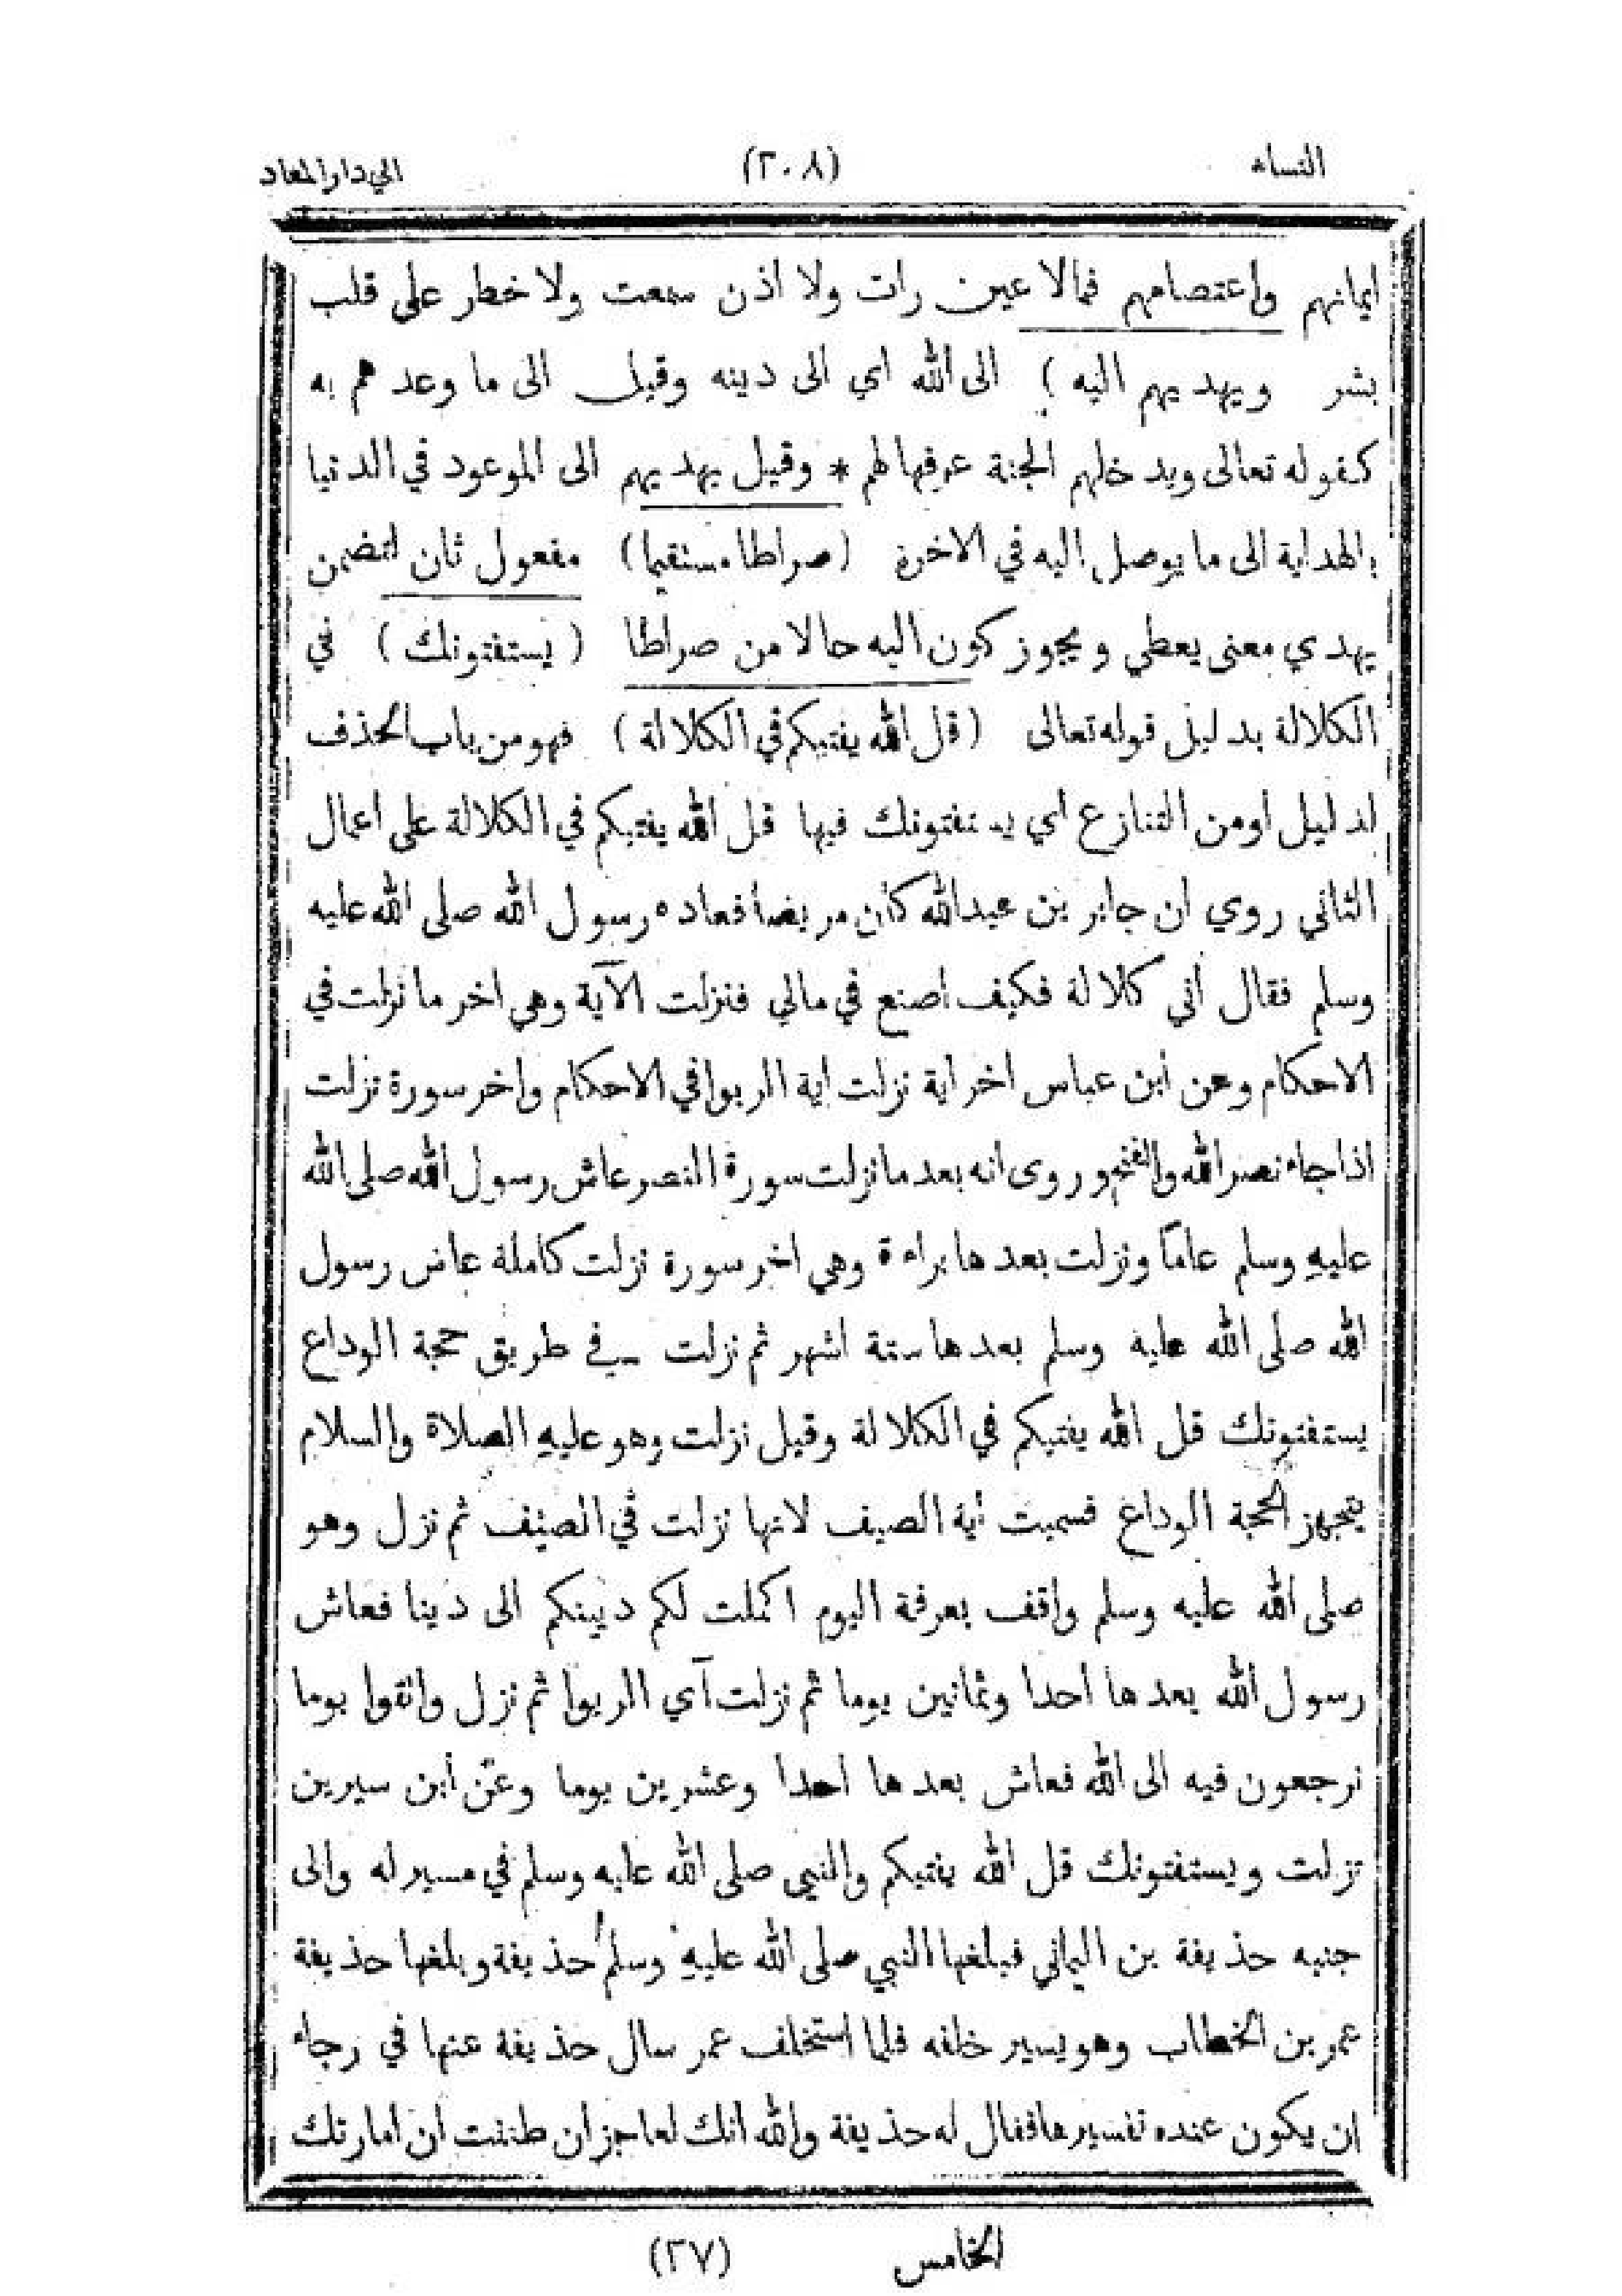 النساء (٢٠٨) الي دار المعاد
ايمانهم واعتصامهم فمالا عين رات ولا اذن سمعت ولا خطر على قلب
بشر ويهديهم اليه ) الى الله اي الى دينه وقيل الى ما وعدهم به
كقوله تعالى ويدخلهم الجنة عرفها لهم * وقيل يهديهم الى الموعود في الدنيا
بالهداية الى ما يوصل اليه في الاخرة (صراطا مستقيما) مفعول ثان لتضمن
يهدي معنى يعطي ويجوز كون اليه حالا من صراطا (يستفتونك) في
الكلالة بدليل قوله تعالى (قل الله يفتيكم في الكلالة) فهو من باب الحذف
لدليل او من التنازع اي يستفتونك فيها قل الله يفتيكم في الكلالة على اعمال
الثاني روي ان جابر بن عبدالله كان مريضا فعاده رسول الله صلى الله عليه
وسلم فقال أني كلالة فكيف اصنع في مالي فنزلت الآية وهي اخر ما نزلت في
الاحكام وعن ابن عباس اخر اية نزلت اية الربوا في الاحكام واخر سورة نزلت
اذا جاء نصر الله والفتح وروى انه بعد ما نزلت سورة النصر عاش رسول الله صلى الله
عليهِ وسلم عاماً ونزلت بعدها براءة وهي اخر سورة نزلت كاملة عاش رسول
الله صلى الله عليه وسلم بعدها ستة اشهر ثم نزلت في طريق حجة الوداع
يستفتونك قل الله يفتيكم في الكلالة وقيل نزلت وهو عليهِ الصلاة والسلام
يتجهز لحجة الوداع فسميت أية الصيف لانها نزلت في الصيف ثم نزل وهو
صلى الله عليه وسلم واقف بعرفة اليوم اكملت لكم دينكم الى دينا فعاش
رسول الله بعدها احدا وثمانين يوما ثم نزلت آي الربوا ثم نزل واتقوا يوما
ترجعون فيه الى الله فعاش بعدها احدا وعشرين يوما وعن أبن سيرين
نزلت ويستفتونك قل الله يفتيكم والنبي صلى الله عليه وسلم في مسير له والى
جنبه حذيفة بن اليماني فبلغها النبي صلى الله عليهِ وسلم حذيفة وبلغها حذيفة
عمر بن الخطاب وهو يسير خلفه فلما استخلف عمر سال حذيفة عنها في رجاء
ان يكون عنده تفسيرها فقال له حذيفة والله انك لعاجز ان ظننت ان امارتك
الخامس (٢٧)